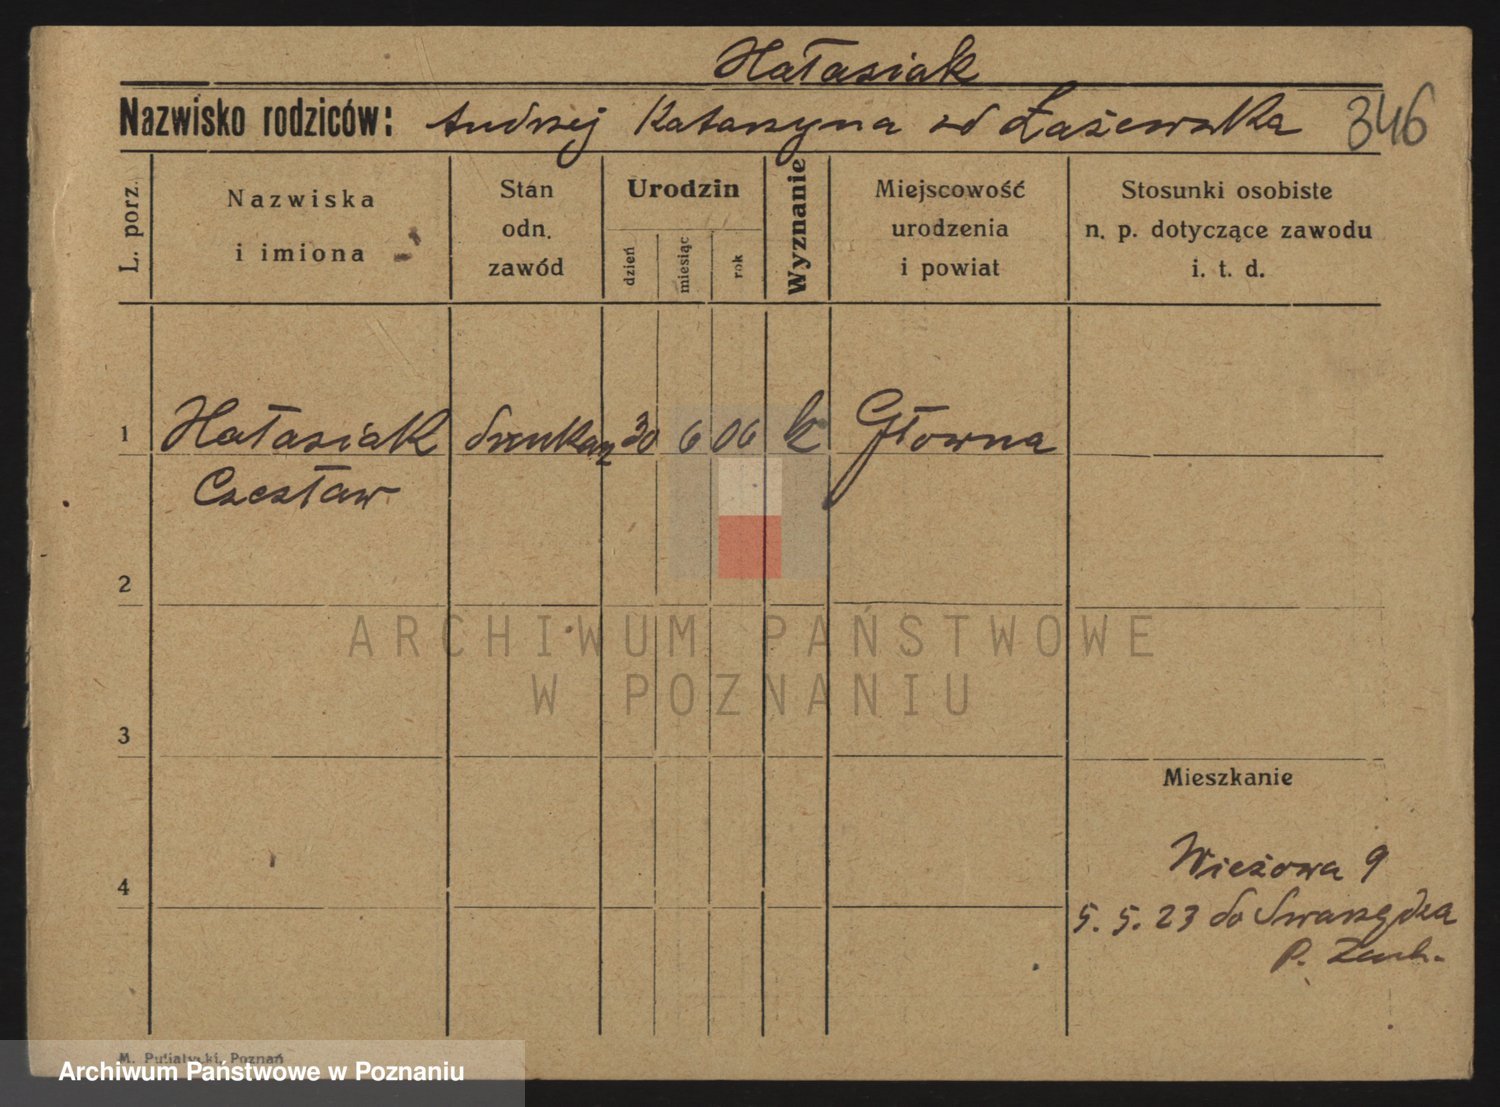 Hałasiak
Nazwisko rodziców: Andrzej Katarzyna zd Łażewska 346
L. porz.
Nazwiska
i imiona
Stan
odn.
zawód
Urodzin
dzień
miesiąc
rok
Wyznanie
Miejscowość
urodzenia
i powiat
Stosunki osobiste
n. p. dotyczące zawodu
i. t. d.
1 Hałasiak 30 6 06 k Główna
Czesław
2
ARCHIWUM PAŃSTWOWE
W POZNANIU
3
Mieszkanie
4
Wieżowa 9
5. 5. 23 do Swarzędza
P.
M. Putiatycki, Poznań
Archiwum Państwowe w Poznaniu